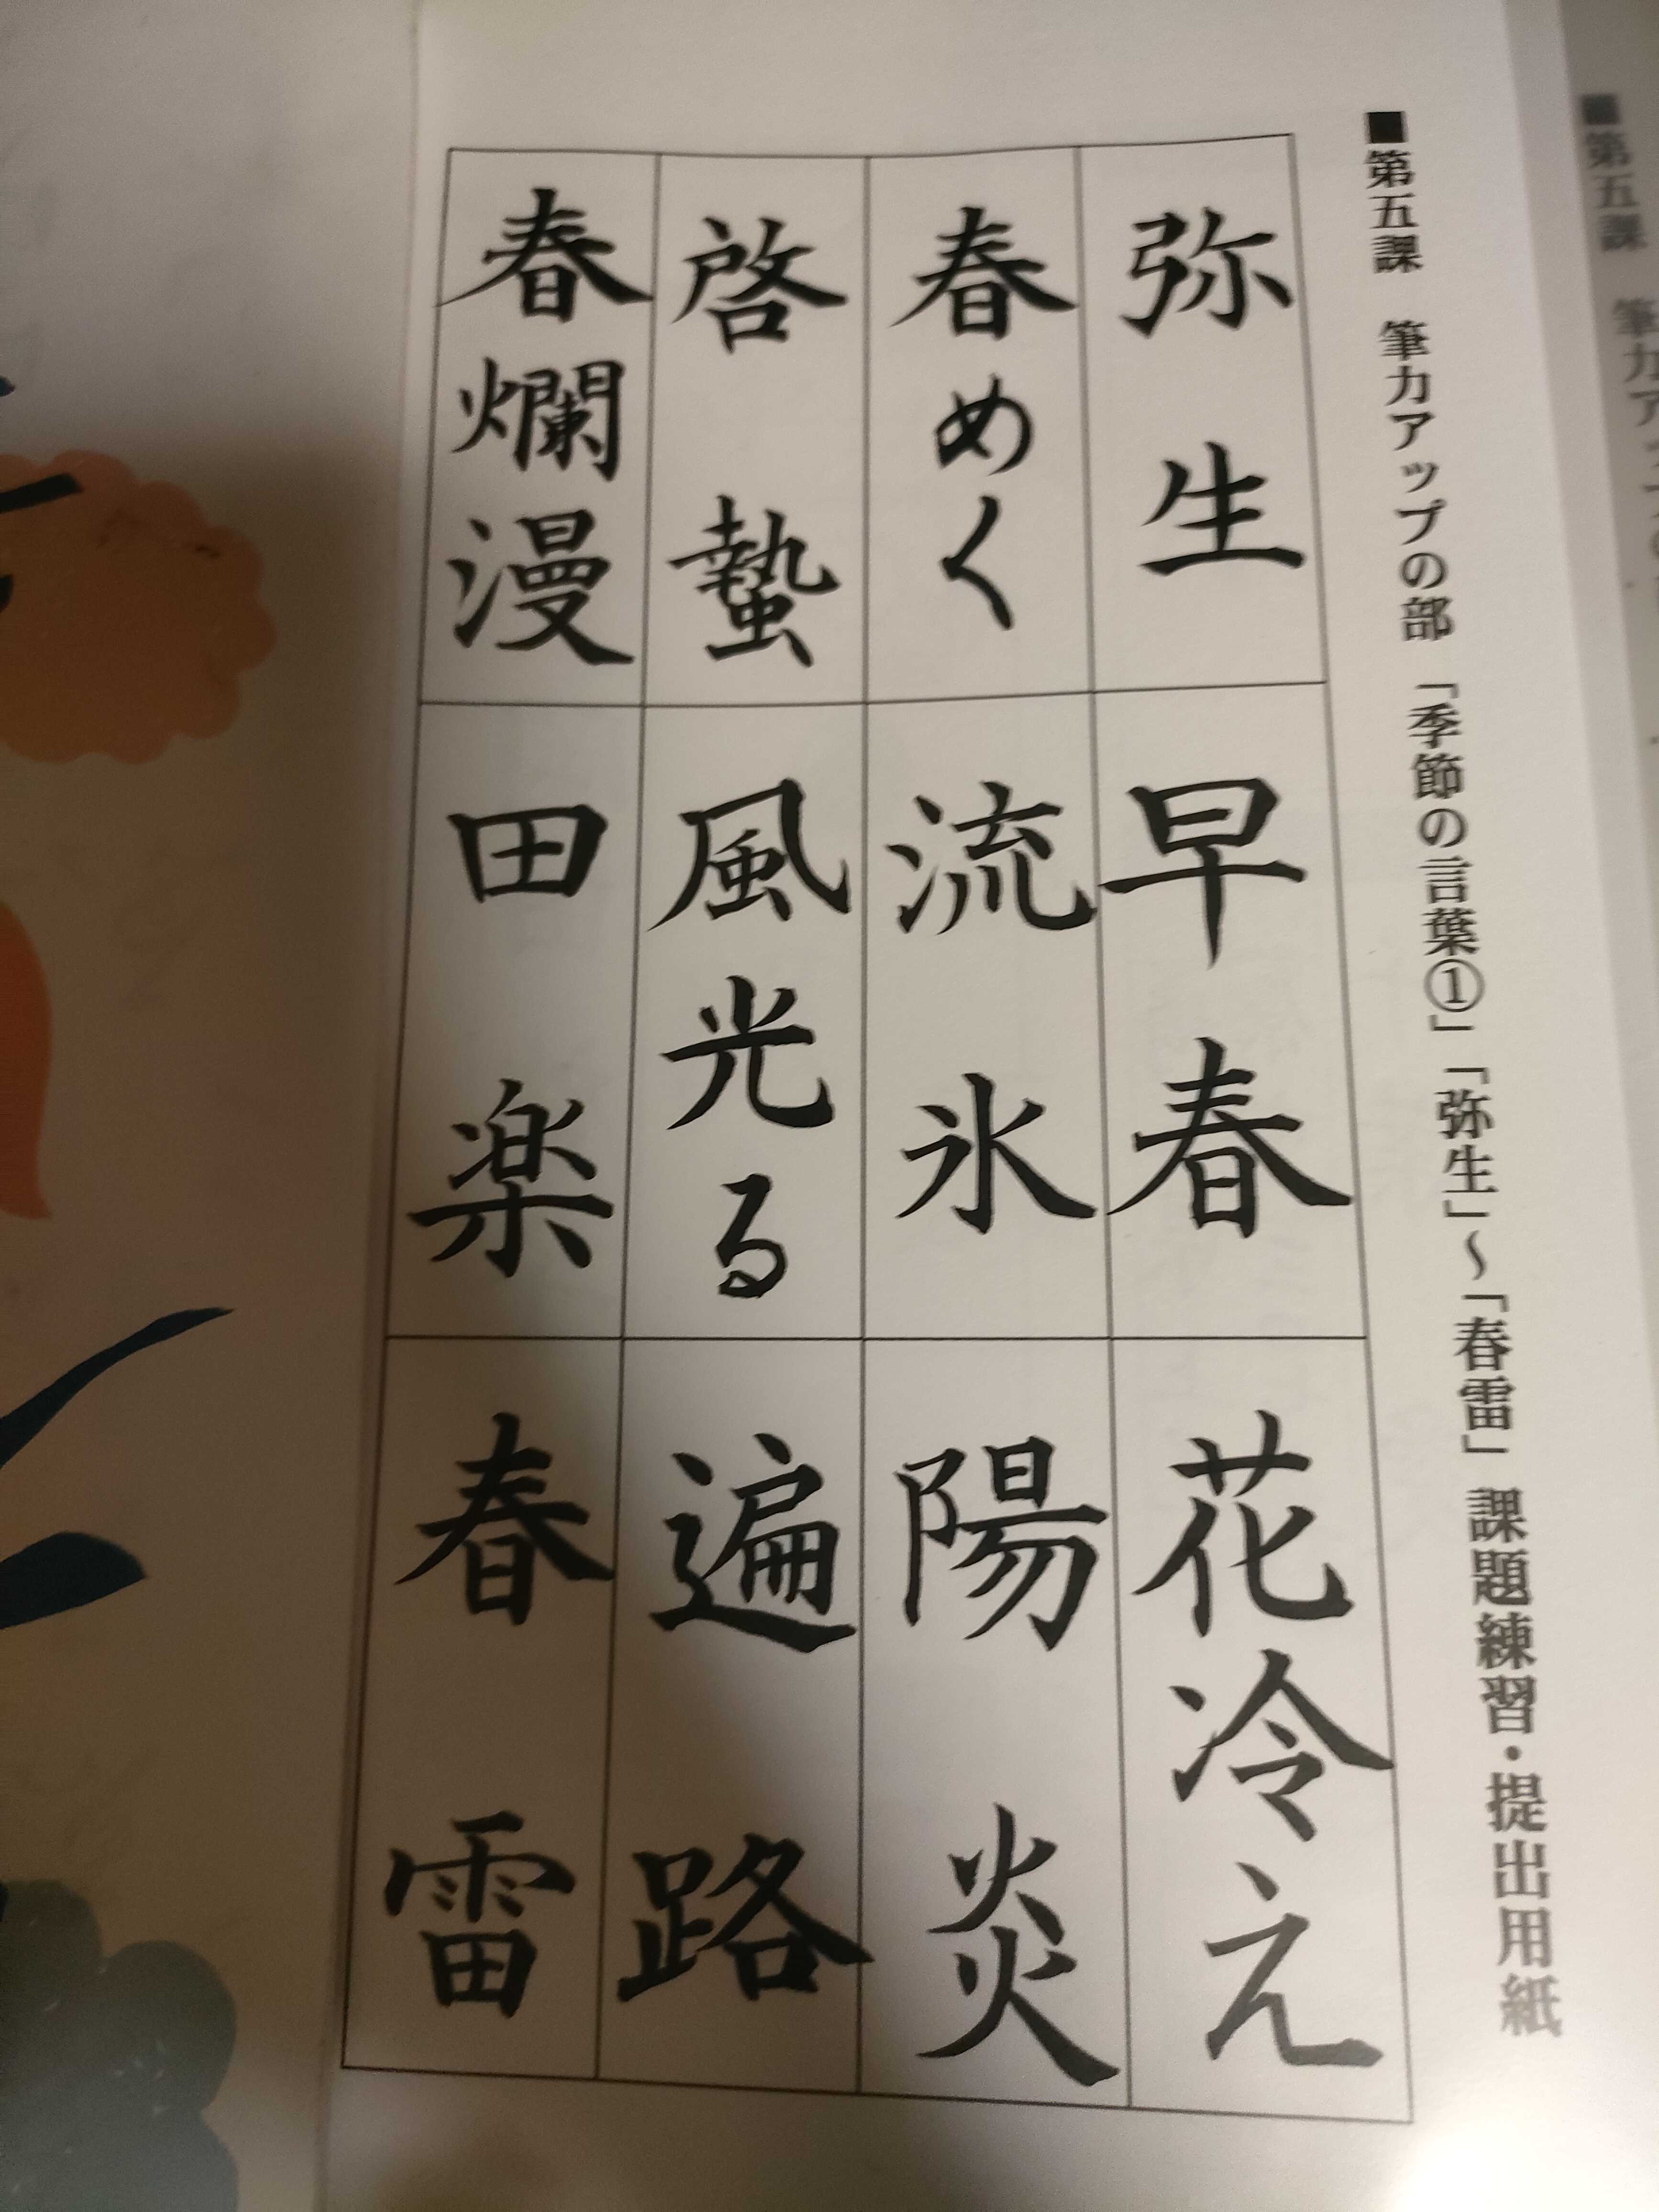 ■第五課 筆力アップの部 「季節の言葉①」「弥生」〜「春雷」 課題練習・提出用紙
弥生
早春
花冷え
春めく
流氷
陽炎
啓蟄
風光る
遍路
春爛漫
田楽
春雷
■第五課 筆力ア